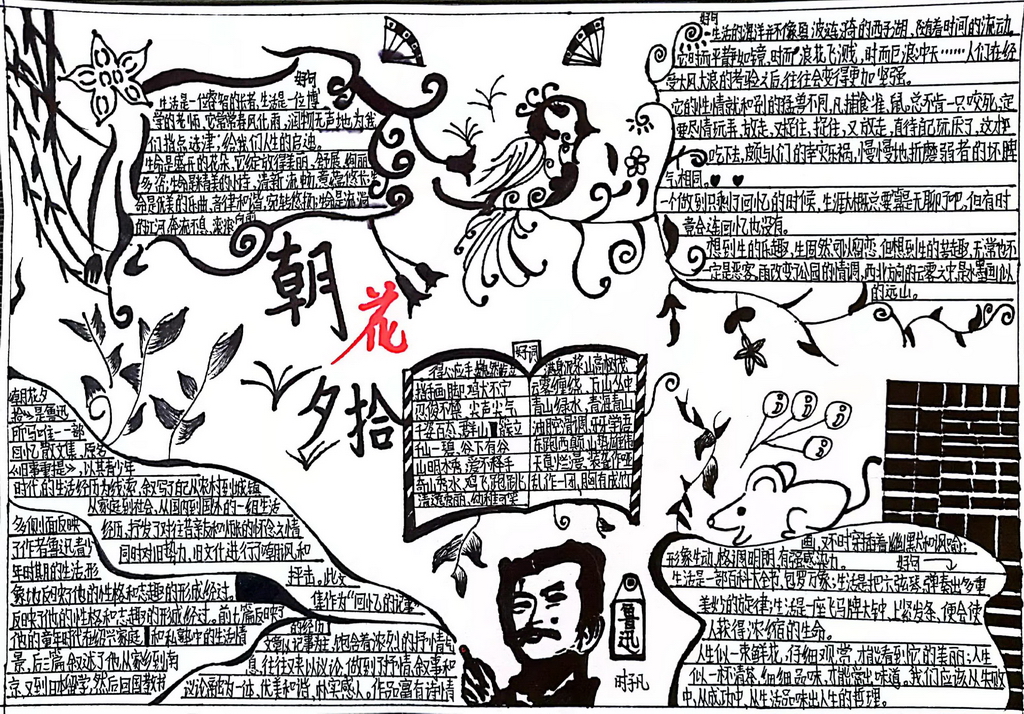 好句
生活是一位睿智的长者,生活是一位博
学的老师,它常常春风化雨,润物无声地为我
们指点迷津;给我们人生的启迪。
生命是盛开的花朵,它绽放得美丽、舒展、绚丽
多姿;生命是精美的小诗,清新流畅,意蕴悠长
命是优美的乐曲,音律和谐,宛转悠扬;生命是流淌
的江河,奔流不息,滚滚向前
好句
生活的海洋并不像碧波涟漪的西子湖,随着时间的流动,
它时而平静如镜,时而浪花飞溅,时而巨浪冲天……人们在经
受大风大浪的考验之后,往往会变得更加坚强。
它的性情就和别的猛兽不同,凡捕食雀、鼠,总不肯一只咬死,定
要尽情玩弄,放走,又捉住,捉住,又放走,直待自己玩厌了,这才
吃下去,颇与人们的幸灾乐祸,慢慢地折磨弱者的坏脾
气相同。
一个做到只剩了回忆的时候,生涯大概总要算是无聊了吧,但有时
竟会连回忆也没有。
想到生的乐趣,生固然可以留恋,但想到生的苦趣,无常也不
一定是恶客。雨改变了公园的情调,西北方向的云雾之中是水墨画似
的远山。
朝
花
夕
拾
好词
得心应手
满身泥浆 山高树茂
指手画脚 鸡犬不宁
云雾缭绕
忍俊不禁 尖声尖气
青山绿水
千姿百态
油腔滑调 牙牙学语
千山一碧 谷下有谷
东跑西颠
山明水秀 爱不释手
天真烂漫
奇山秀水 鸡飞
乱作一团 胸有成竹
清逸秀丽
朝花夕
拾》是鲁迅
所写唯一一部
回忆散文集,原名
《旧事重提》,以其青少年
时代的生活经历为线索,叙写了自己从农村到城镇
从家庭到社会,从国内到国外的一组生活
经历,抒发了对往昔亲友和师长的怀念之情
同时对旧势力、旧文化进行了嘲讽,和
抨击。此文
集作为“回忆的记事”
多侧面反映
了作者鲁迅青少
年时期的生活,形
象地反映了他的性格和志趣的形成经过。
反映了他的性格和志趣的形成经过。前七篇反映
他的童年时代在绍兴家庭和私塾中的生活情
景,后三篇叙述了他从家乡到南
京,又到日本留学,然后回国教书
的经历
文章以记事为主,饱含着浓烈的抒情气
息,往往又夹以议论,做到了抒情、叙事和
议论融为一体,优美和谐,朴实感人。作品富有诗情
画,又不时穿插着幽默和讽喻;
形象生动,格调明朗,有强感染力。
好句
生活是一部百科大全书,包罗万象;生活是把六弦琴,弹奏出多重
美妙的旋律;生活是一座飞马牌大钟,上紧发条,便会使
人获得浓缩的生命。
人生似一束鲜花,仔细观赏,才能看到它的美丽;人生
似一杯清茶,细细品味,才能尝出味道。我们应该从失败
中,从成功中,从生活品味出人生的哲理。
鲁迅